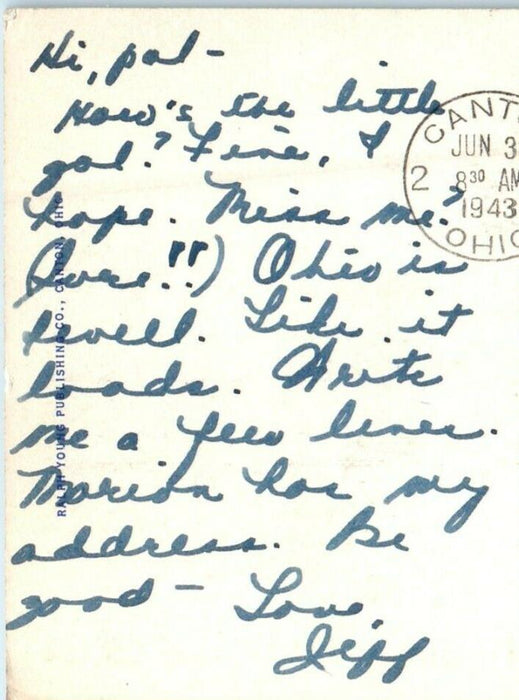 Hi, pal -
How's the little
gal? Fine, I
hope. Miss me?
(Sure!!") Ohio is
swell. Like it
loads. Write
me a few lines.
Marion has my
address. Be
good - Love,
Jeff
CANT
JUN 3
8 30 AM
1943
2
OHIO
RALPH YOUNG PUBLISHING CO., CANTON, OHIO